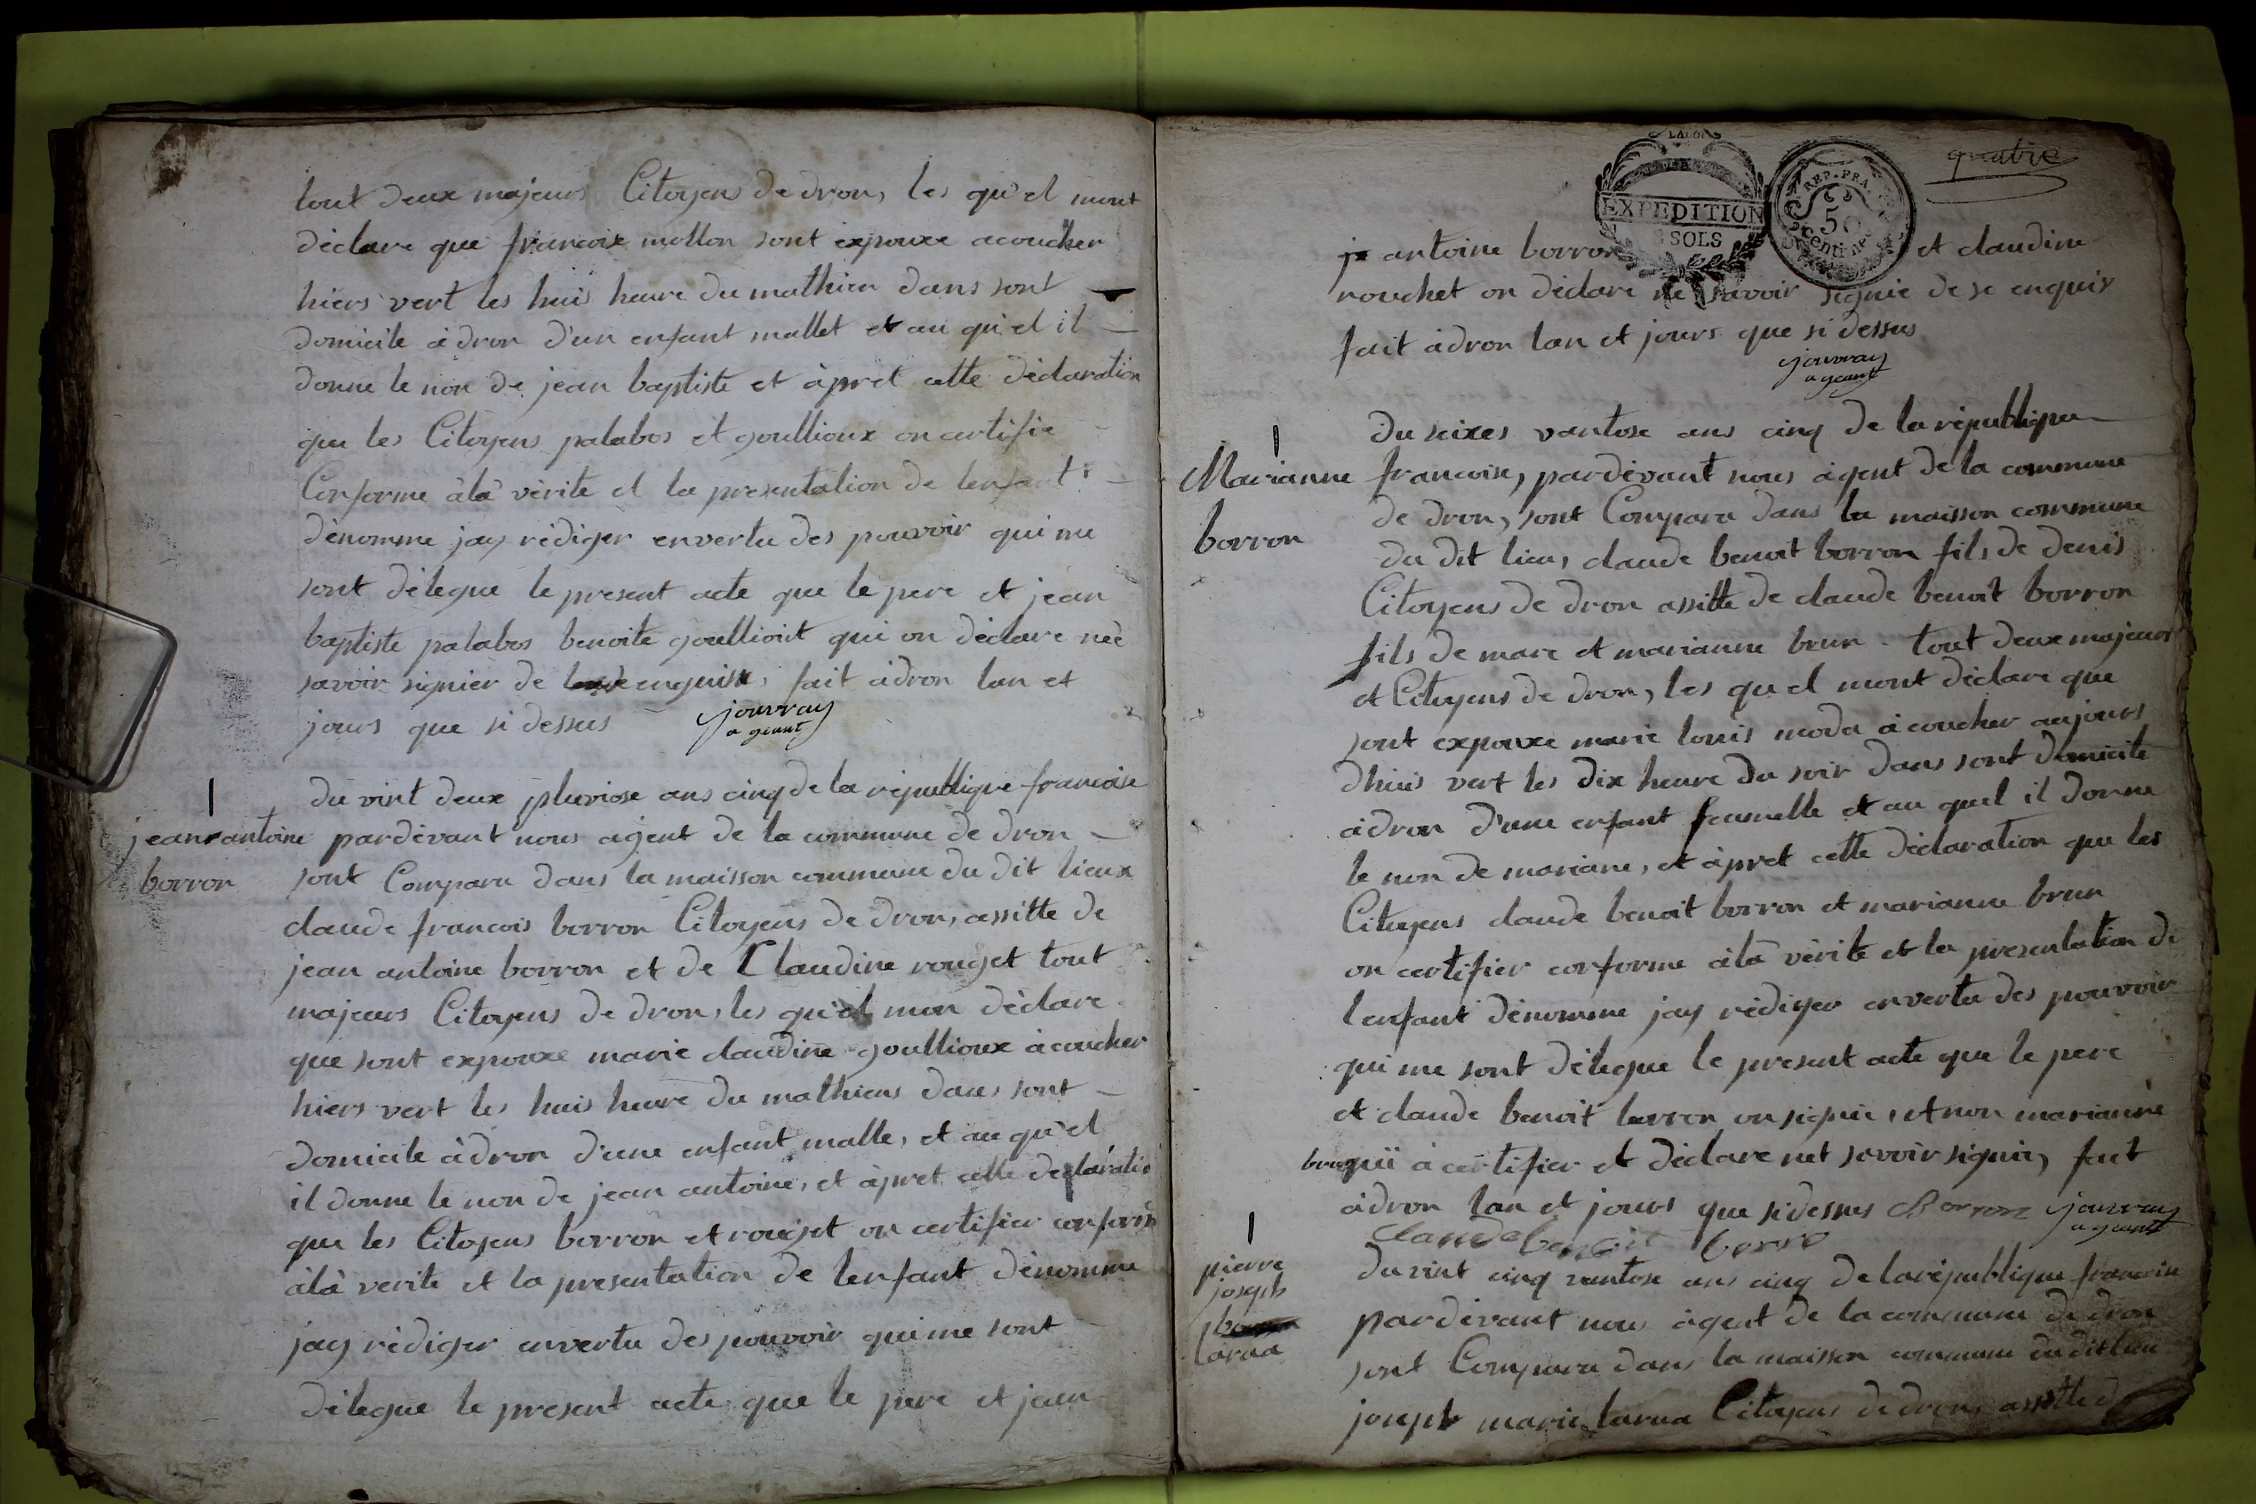 tout deux majeurs Citoyens de dron, les qu'el mont
déclare que francoix mollon sont expouxe acoucher
hiers vert les huis heure du mathien dans sont
domicile àdron d'un enfant mallet et au qu'el il
donne le non de jean baptiste et àpret cette déclaration
que les Citoyens palabos et goullioux on certifie
Conforme àla vèrite et la presentation de lenfant
dènomme jay rèdiger envertu des pouvoir qui me
sont dèlegue le present acte que le pere et jean
baptiste palabos benoite goullioüt qui on dèclare neè
savoir signier de enquisx, fait àdron lan et
jours que si dessus
jouvray
ageant
jean antoine
borron
du vint deux pluviose ans cinq de la rèpublique francoise
pardèvant nous agent de la commune de dron
sont Comparu dans la maisson commune du dit lieux
claude francois borron Citoyens de dron, assitte de
jean antoine borron et de Claudine rouget tout
majeurs Citoyens de dron, les qu'el mon dèclare
que sont expouxe marie claudine goullioux àcoucher
hiers vert les huis heure du mathiens dans sont
domicile àdron d'une enfant malle, et au qu'el
il donne le non de jean antoine, et àpret cette declaratio
que les Citoyens borron et rouget on certifier conforme
àlà verite et la presentation de lenfant dènomme
jay rèdiger envertu des pouvoir qui me sont
dèlegue le present acte que le pere et jean
quatre
EXPEDITION
SOLS
REP. FRA.
50
centi
antoine borron et claudine
rouchet on dèclare ne savoir signie de se enquix
fait àdron lan et jours que si dessus
jouvray
ageant
Marianne
borron
du seixes vantose ans cinq de la rèpublique
francoise, pardèvant nous àgent de la commune
de dron, sont Comparu dans la maisson commune
du dit lieu, claude benoit borron fils de denis
Citoyens de dron assitte de claude benoit borron
fils de marc et marianne brun tout deux majeurs
et Citoyens de dron, les qu el mont dèclare que
sont expouxe marie louis moda àcoucher aujours
dhuis vert les dix heure du soir dans sont domicile
àdron d'une enfant feumelle et au quel il donne
le non de mariane, et àpret cette dèclaration que les
Citoyens claude benoit borron et marianne brun
on certifier conforme àlà vèrite et la presentation de
lenfant dènomme jay rèdiger envertu des pouvoir
qui me sont dèlegue le present acte que le pere
et claude benoit borron on signie, et non marianne
brun qui à certifier et dèclare net savoir signier, fait
àdron lan et jours que si dessus CBorron jouvray
ageant
Claude benoit borro
pierre
joseph
larua
du vint cinq vantose ans cinq de la rèpublique francoise
pardèvant nous àgent de la commune de dron
sont Comparu dans la maisson commune du dit lieu
joseph marie larua Citoyens de dron, assitte de